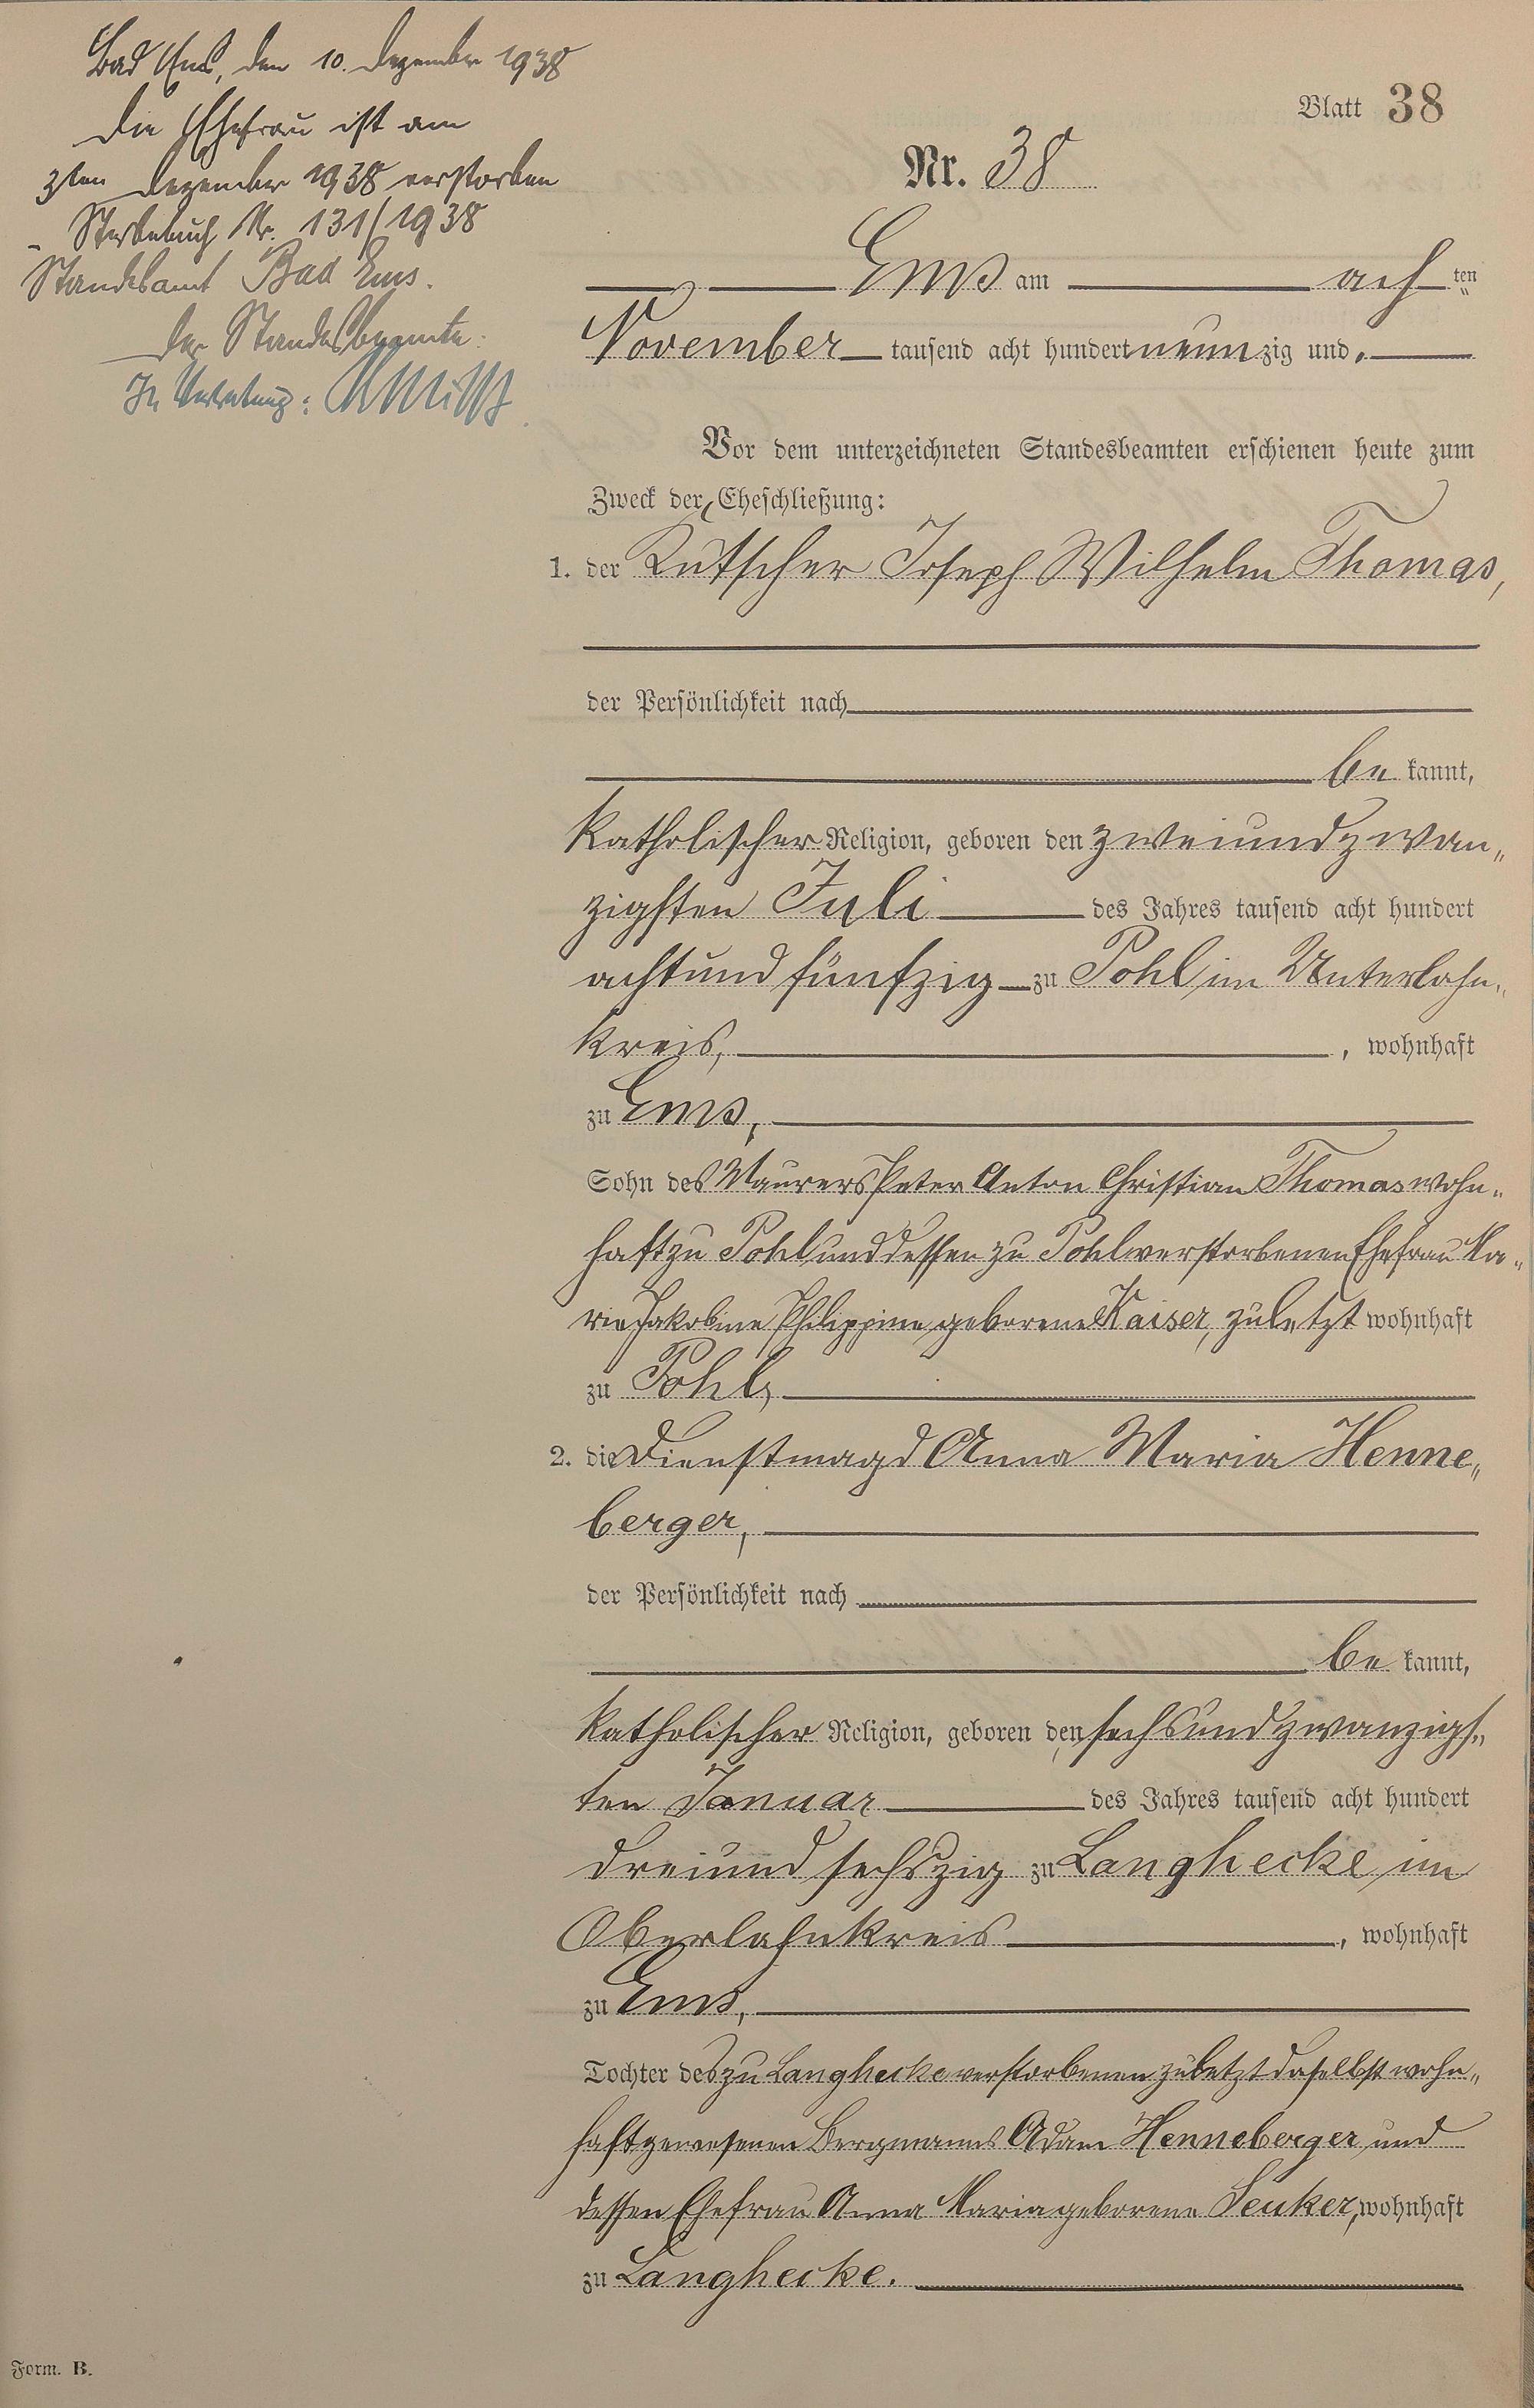 Bad Ems, den 10. Dezember 1938
Die Ehefrau ist am
3ten Dezember 1938 verstorben
- Sterbebuch Nr. 131/1938
Standesamt Bad Ems.
Der Standesbeamte:
In Vertretung:
Blatt 38
Nr. 38
Ems am acht ten
November tausend acht hundert neunzig und
Vor dem unterzeichneten Standesbeamten erschienen heute zum
Zweck der Eheschließung:
1. der Kutscher Joseph Wilhelm Thomas,
der Persönlichkeit nach
be kannt,
katholischer Religion, geboren den zweiundzwan„
zigsten Juli des Jahres tausend acht hundert
achtundfünfzig zu Pohl im Unterlahn„
kreis, , wohnhaft
zu Ems,
Sohn des Maurers Peter Anton Christian Thomas wohn„
haft zu Pohl und dessen zu Pohl verstorbenen Ehefrau Ma„
rie Jakobine Philippine geborene Kaiser, zuletzt wohnhaft
zu Pohl,
2. die Dienstmagd Anna Maria Henne„
berger,
der Persönlichkeit nach
be kannt,
katholischer Religion, geboren den sechsundzwanzigs„
ten Januar des Jahres tausend acht hundert
dreiundsechszig zu Langhecke im
Oberlahnkreis , wohnhaft
zu Ems,
Tochter des zu Langhecke verstorbenen zuletzt daselbst wohn„
haft gewesenen Bergmanns Adam Henneberger und
dessen Ehefrau Anna Maria geborene Seuker, wohnhaft
zu Langhecke.
Form. B.